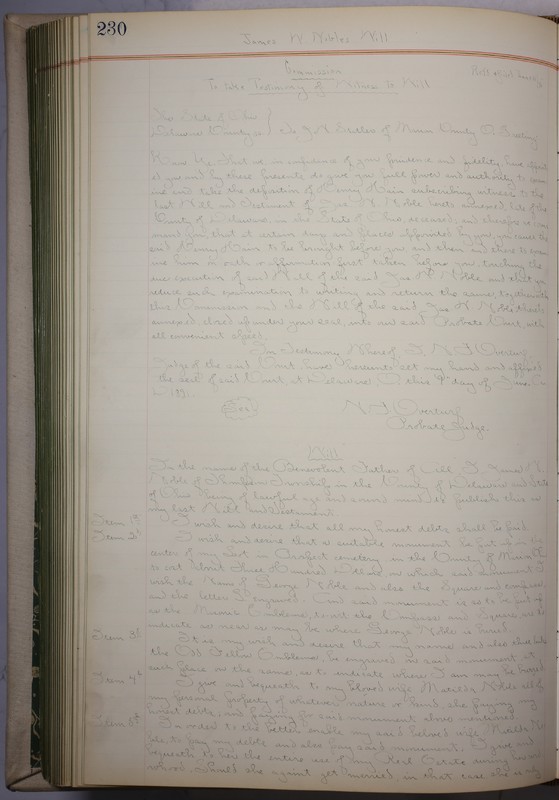 230
James W Nobles Will
Commission
To take Testimony of Witness to Will
The State of Ohio
Delaware County ss. To J. H. of Marion County O. Greeting
Know Ye That we in confidence of your prudence and fidelity have
you and by these presents do give you full power and authority to
and take the deposition of Henry Hain subscribing witness to the
last Will and Testament of Jas W. Noble hereto annexed, late of the
County of Delaware, in the State of Ohio deceased; and therefore we
you, that at certain days and places appointed by you, you cause the
said Henry Hain to be brought before you and then and there to
him on oath or affirmation first taken before you, touching the
due execution of said Will of the said Jas W Noble and that you
reduce such examination to writing and return the same, together with
this Commission and the Will of the said Jas W. Noble thereto
annexed, closed up under your seal, into our said Probate Court, with
all convenient speed.
In Testimony Whereof I, N. F. Overturf
Judge of the said Court, have hereunto set my hand and affixed
the seal of said Court, at Delaware O. this 9th day of June
1891.
N F Overturf
Probate Judge.
Will
In the name of the Benevolent Father of All I, James W.
Noble of Thompson Township in the County of Delaware and State
of Ohio being of lawful age and sound mind do publish this as
my last Will and Testament.
Item 1st I wish and desire that all my honest debts shall be paid
Item 2d I wish and desire that a suitable monument be put up in the
center of my Lot in Prospect cemetery in the County of Marion O.
to cost about Three Hundred Dollars, on which said monument I
wish the Name of George Noble and also the Square and compass
and the letter G engraved. And said monument is to be put up
so the Masonic Emblems, to wit the Compass and Square, as to
indicate as near as may be where George Noble is buried.
Item 3d It is my wish and desire that my name and also three links
the Odd Fellows Emblems, be engraved on said monument, at
such place on the same, as to indicate where I am may be buried
Item 4th I give and bequeath to my beloved wife Matilda Noble all of
my personal property of whatever nature or kind, she paying my
honest debts, and paying for said monument above mentioned.
Item 5th In order to the better enable my said beloved wife, Matilda
to pay my debts and also pay said monument. I give and
bequeath to her the entire use of my Real Estate during her
widowhood, should she again get married, in that case she is